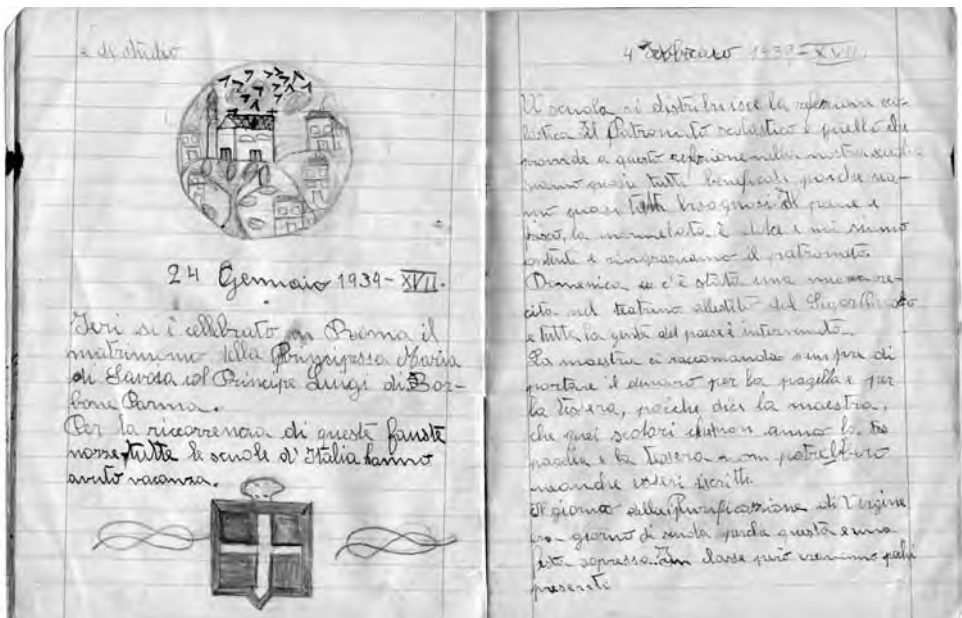 e di studio
24 Gennaio 1939-XVII.
Ieri si è cellebrato in Roma il
matrimonio della Principessa Maria
di Savoia col Principe Luigi di Bor-
bone Parma.
Per la ricorrenza di queste fauste
nozze tutte le scuole d'Italia hanno
avuto vacanza.
4 Febbraio 1939-XVII.
A scuola si distribuisce la refezione sco-
lastica Il Patronato scolastico è quello che
provvede a questa refezione nella nostra
siamo quasi tutti beneficati perché sia-
mo quasi tutti bisognosi Il pane è
la marmelata è dolce e noi siamo
contenti e ringraziamo il patronato.
Domenica c'è stata una re-
cita nel teatrino allestito dal
e tutta la gente del paese è intervenuta.
La maestra ci raccomanda sempre di
portare il denaro per la pagella e per
la tessera, poiche dice la maestra,
che quei scolari non anno la
pagella e la tessera non potrebbero
neanche esseri iscritti.
Il giorno della Purificazione di Vergine
era giorno di scuola perche questa è una
festa sopressa. In classe però eravamo pochi
presenti